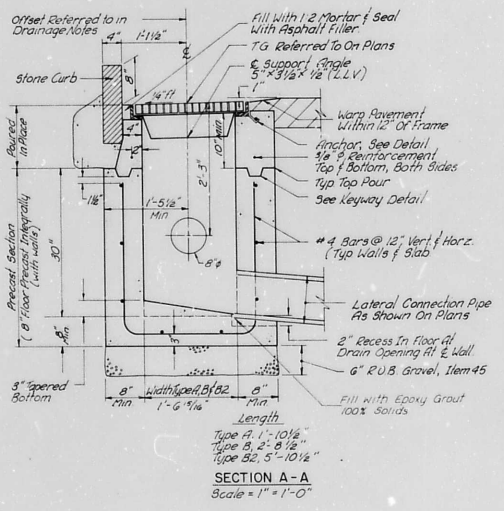 Offset Referred to in
Drainage Notes
4"
1'-1½"
℄
Fill With 1:2 Mortar & Seal
With Asphalt Filler.
T.G. Referred To On Plans
℄ Support Angle
5" x 3½ x ½" (L.L.V.)
Stone Curb
8"
¼"ft
1"
Warp Pavement
Within 12" Of Frame
Anchor, See Detail
5/8" ø Reinforcement
Top & Bottom, Both Sides
Typ Top Pour
See Keyway Detail
Poured
in Place
4"
2"
10" Min
2'-3"
1½"
1'-5½"
Min
8"ø
#4 Bars @ 12", Vert & Horz.
(Typ Walls & Slab
Precast Section
(8" Floor Precast Integrally
(with walls)
30"
Lateral Connection Pipe
As Shown On Plans
8"
Min
3"
2" Recess In Floor At
Drain Opening At ℄ Wall.
6" R.O.B. Gravel, Item 45
3" Tapered
Bottom
8"
Min
Width Type A, B & B2
1'-6 15/16"
8"
Min
Fill with Epoxy Grout
100% Solids
Length
Type A, 1'-10½"
Type B, 2'-8½"
Type B2, 5'-10½"
SECTION A-A
Scale = 1" = 1'-0"